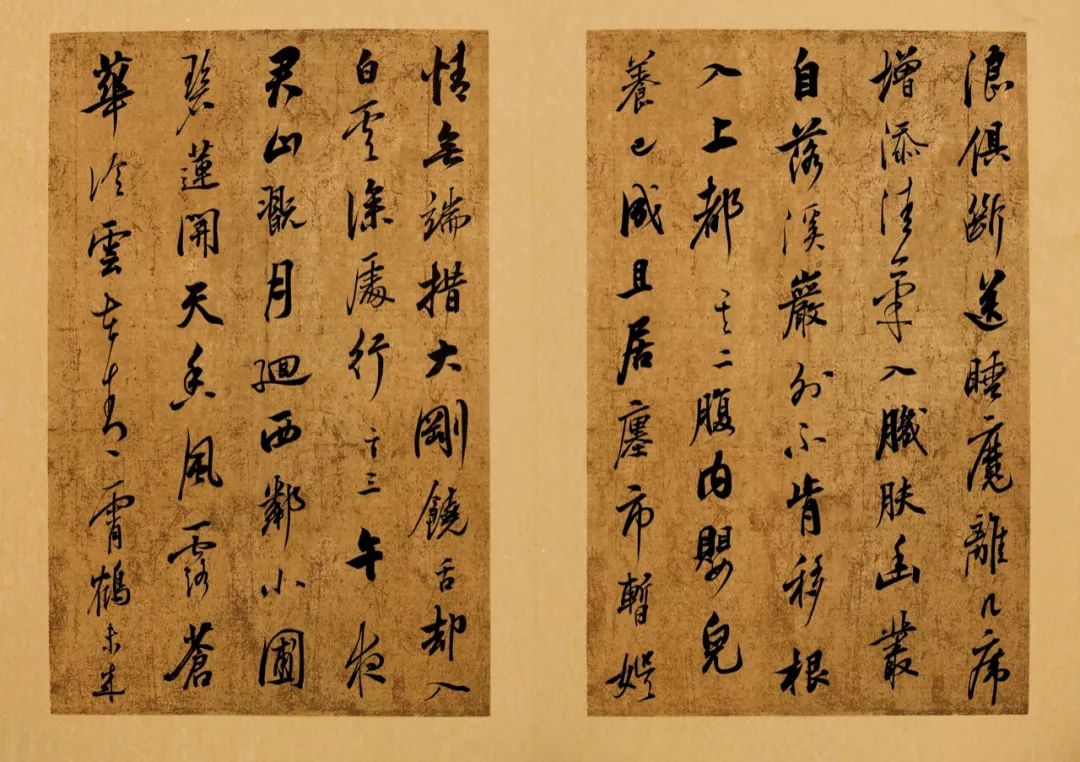 浪俱斷送睡魔離几席
增添清氣入臓肤幽叢
自落溪巖外不肯移根
入上都其二腹内嬰兒
養已成且居廛市暫娛
情無端措大剛饒舌却入
白雲深處行其三午夜
君山翫月廻西鄰小圃
碧蓮開天香風露蒼
華冷雲在青霄鶴未來